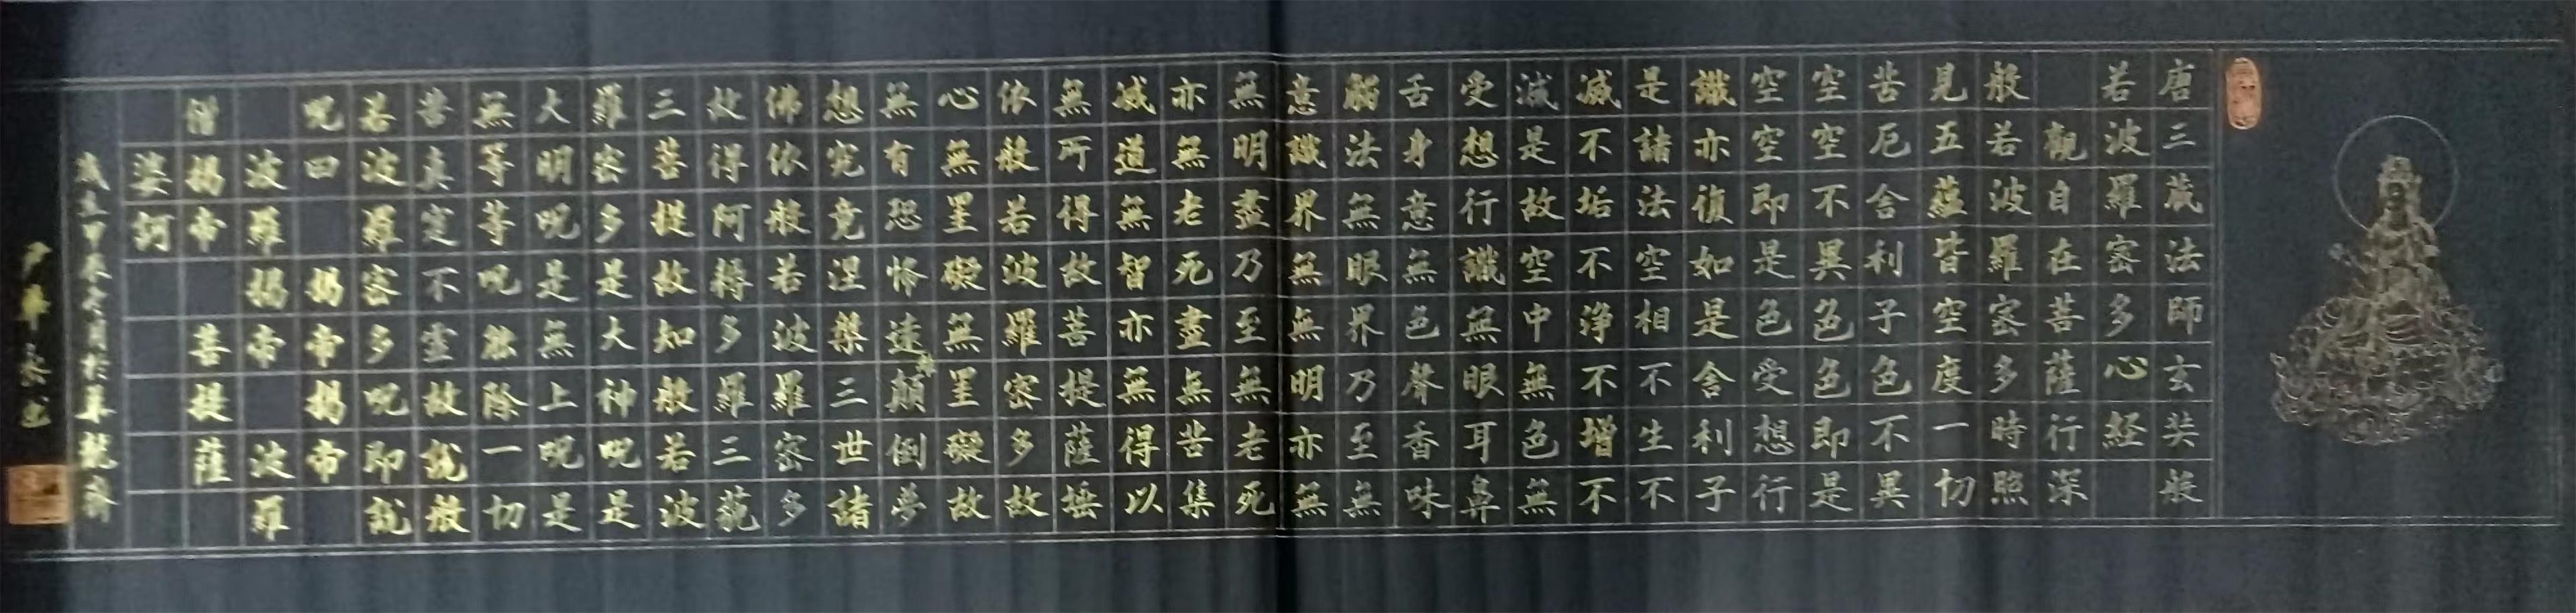 唐三蔵法師玄奘般
若波羅密多心経
觀自在菩薩行深
般若波羅密多時照
見五蘊皆空度一切
苦厄舍利子色不異
空空不異色色即是
空空即是色受想行
識亦復如是舍利子
是諸法空相不生不
滅不垢不浄不增不
減是故空中無色無
受想行識無眼耳鼻
舌身意無色聲香味
觸法無眼界乃至無
意識界無無明亦無
無明盡乃至無老死
亦無老死盡無苦集
滅道無智亦無得以
無所得故菩提薩埵
依般若波羅密多故
心無罣礙無罣礙故
無有恐怖遠離顛倒夢
想究竟涅槃三世諸
佛依般若波羅密多
故得阿耨多羅三藐
三菩提故知般若波
羅密多是大神呪是
大明呪是無上呪是
無等等呪能除一切
苦真実不虛故說般
若波羅密多呪即說
呪曰 揭帝揭帝
波羅揭帝 波羅
僧揭帝 菩提薩
婆訶
甲辰 月於 齋